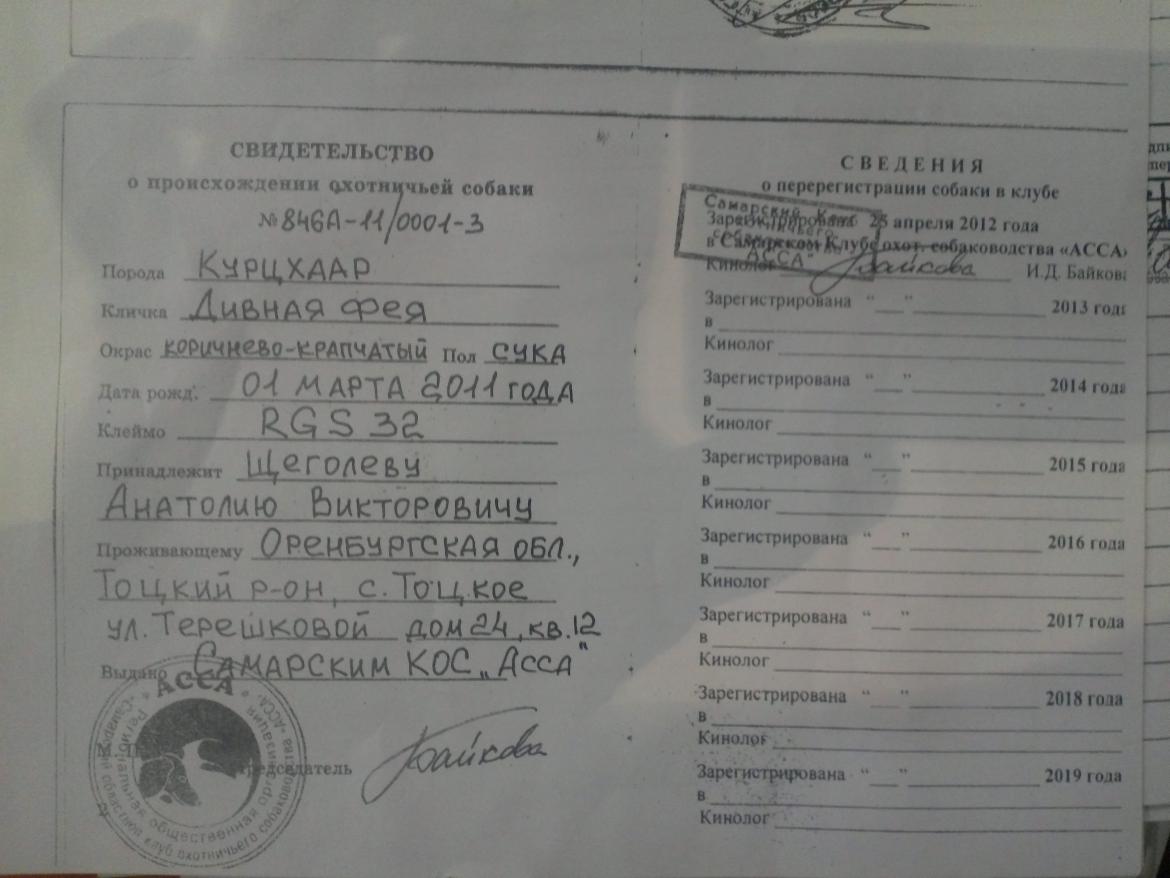 СВИДЕТЕЛЬСТВО
о происхождении охотничьей собаки
№ 846А-11/0001-3
Порода КУРЦХААР
Кличка ДИВНАЯ ФЕЯ
Окрас КОРИЧНЕВО-КРАПЧАТЫЙ Пол СУКА
Дата рожд. 01 МАРТА 2011 ГОДА
Клеймо RGS 32
Принадлежит ЩЕГОЛЕВУ
АНАТОЛИЮ ВИКТОРОВИЧУ
Проживающему ОРЕНБУРГСКАЯ ОБЛ.,
ТОЦКИЙ Р-ОН, С. ТОЦКОЕ
УЛ. ТЕРЕШКОВОЙ ДОМ 24, КВ. 12
Выдано САМАРСКИМ КОС „АССА"
АССА
Региональная общественная организация
Самарский областной клуб охотничьего собаководства «АССА»
Председатель Байкова
СВЕДЕНИЯ
о перерегистрации собаки в клубе
Самарский Клуб
охотничьего
собаководства
"АССА"
Зарегистрирована 25 апреля 2012 года
в Самарском Клубе охот. собаководства «АССА»
Кинолог Байкова И.Д. Байкова
Зарегистрирована “___” ____________ 2013 года
в
Кинолог
Зарегистрирована “___” ____________ 2014 года
в
Кинолог
Зарегистрирована “___” ____________ 2015 года
в
Кинолог
Зарегистрирована “___” ____________ 2016 года
в
Кинолог
Зарегистрирована “___” ____________ 2017 года
в
Кинолог
Зарегистрирована “___” ____________ 2018 года
в
Кинолог
Зарегистрирована “___” ____________ 2019 года
в
Кинолог